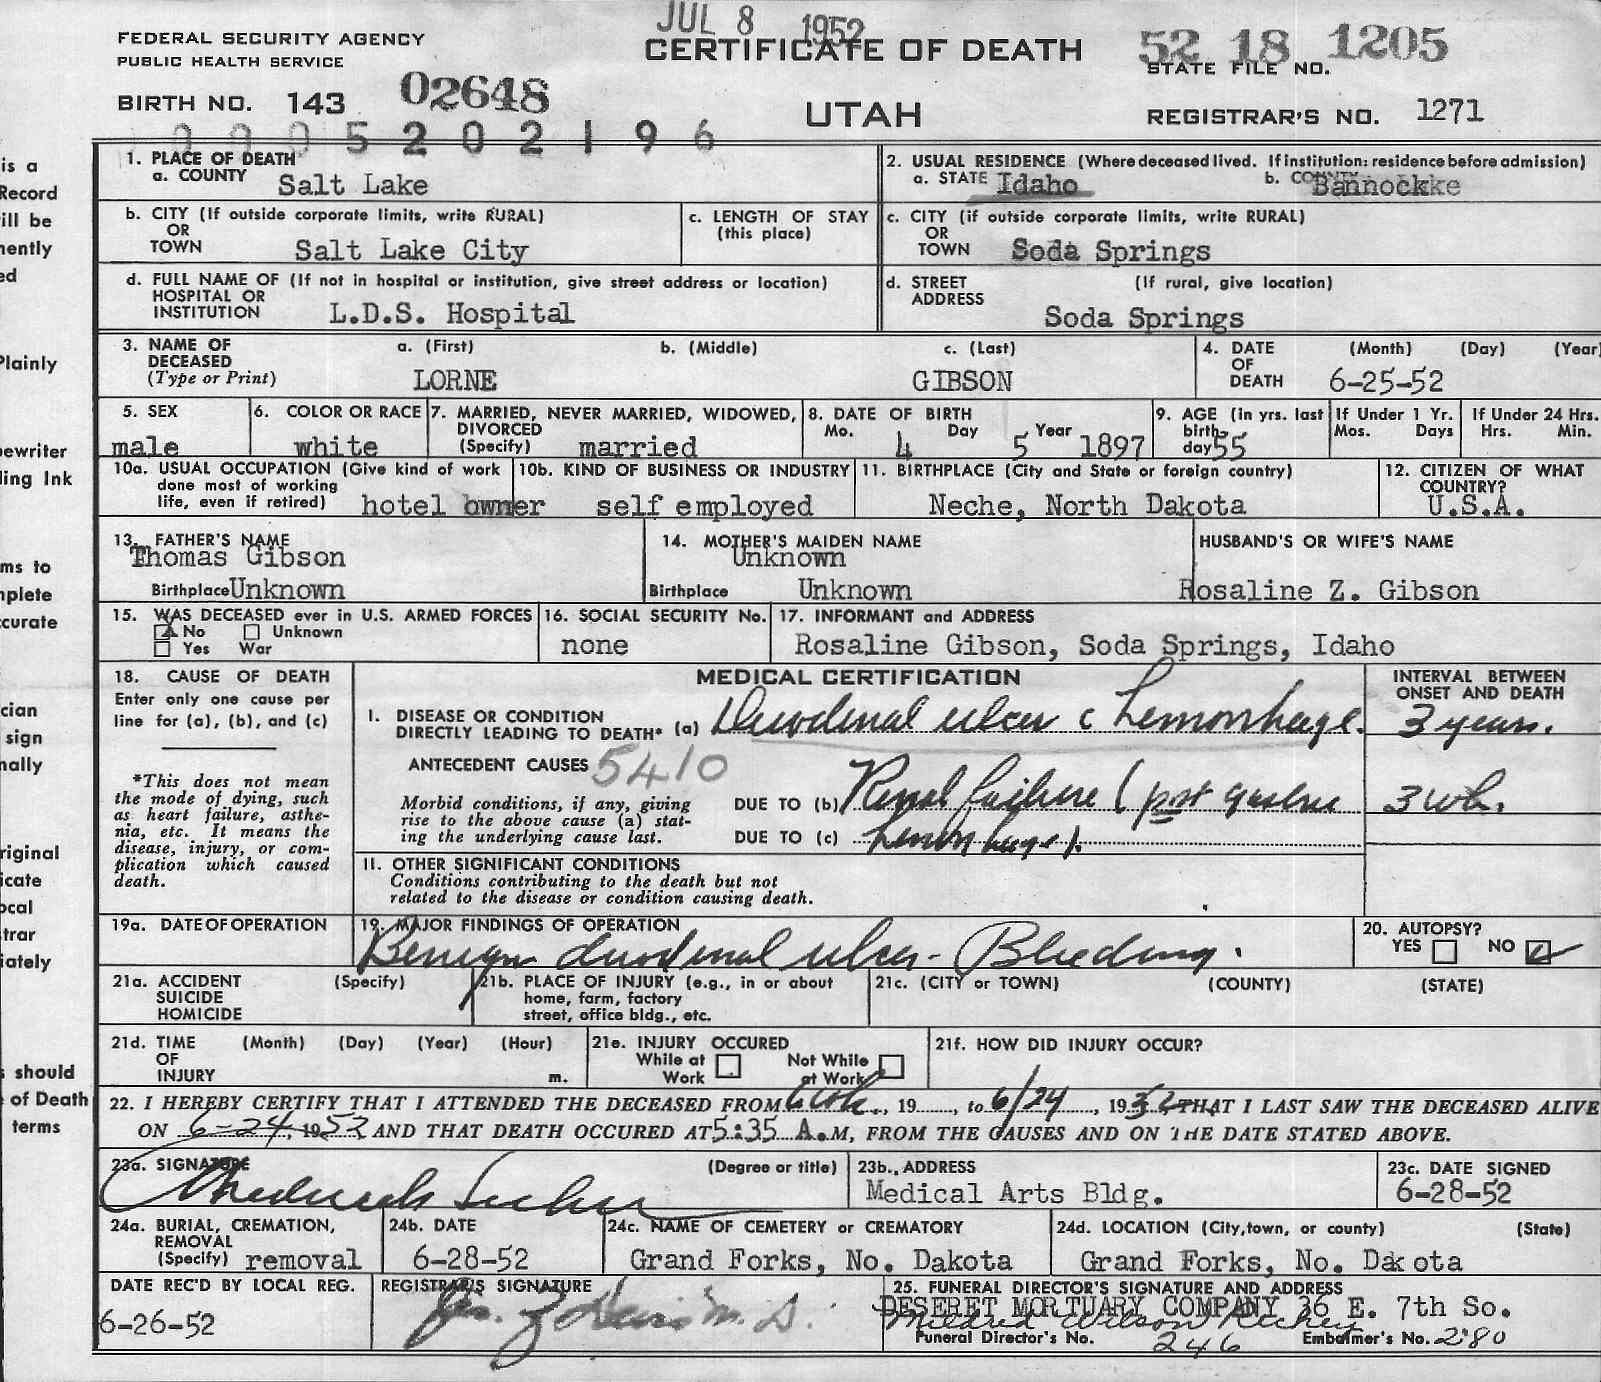 JUL 8 1952
FEDERAL SECURITY AGENCY
PUBLIC HEALTH SERVICE
CERTIFICATE OF DEATH
52 18 1205
STATE FILE NO.
BIRTH NO. 143 02648
UTAH
REGISTRAR'S NO. 1271
0005202196
1. PLACE OF DEATH
a. COUNTY Salt Lake
2. USUAL RESIDENCE (Where deceased lived. If institution: residence before admission)
a. STATE Idaho b. COUNTY
b. CITY (If outside corporate limits, write RURAL)
OR
TOWN Salt Lake City
c. LENGTH OF STAY
(this place)
c. CITY (if outside corporate limits, write RURAL)
OR
TOWN Soda Springs
d. FULL NAME OF (If not in hospital or institution, give street address or location)
HOSPITAL OR
INSTITUTION L.D.S. Hospital
d. STREET (If rural, give location)
ADDRESS
Soda Springs
3. NAME OF a. (First) b. (Middle) c. (Last)
DECEASED
(Type or Print) LORNE GIBSON
4. DATE (Month) (Day) (Year
OF
DEATH 6-25-52
5. SEX
male
6. COLOR OR RACE
white
7. MARRIED, NEVER MARRIED, WIDOWED,
DIVORCED
(Specify) married
8. DATE OF BIRTH
Mo. 4 Day 5 Year 1897
9. AGE (in yrs. last
birth-
day 55
If Under 1 Yr.
Mos. Days
If Under 24 Hrs.
Hrs. Min.
10a. USUAL OCCUPATION (Give kind of work
done most of working
life, even if retired) hotel owner
10b. KIND OF BUSINESS OR INDUSTRY
self employed
11. BIRTHPLACE (City and State or foreign country)
Neche, North Dakota
12. CITIZEN OF WHAT
COUNTRY?
U.S.A.
13. FATHER'S NAME
Thomas Gibson
Birthplace Unknown
14. MOTHER'S MAIDEN NAME
Unknown
Birthplace Unknown
HUSBAND'S OR WIFE'S NAME
Rosaline Z. Gibson
15. WAS DECEASED ever in U.S. ARMED FORCES
No Unknown
Yes War
16. SOCIAL SECURITY No.
none
17. INFORMANT and ADDRESS
Rosaline Gibson, Soda Springs, Idaho
18. CAUSE OF DEATH
Enter only one cause per
line for (a), (b), and (c)
*This does not mean
the mode of dying, such
as heart failure, asthe-
nia, etc. It means the
disease, injury, or com-
plication which caused
death.
MEDICAL CERTIFICATION
I. DISEASE OR CONDITION
DIRECTLY LEADING TO DEATH* (a) Duodenal ulcer c hemorrhage.
ANTECEDENT CAUSES 5410
Morbid conditions, if any, giving
rise to the above cause (a) stat-
ing the underlying cause last.
DUE TO (b) Renal failure (post gastric
DUE TO (c) hemorrhage).
II. OTHER SIGNIFICANT CONDITIONS
Conditions contributing to the death but not
related to the disease or condition causing death.
INTERVAL BETWEEN
ONSET AND DEATH
3 years.
3 wk.
19a. DATE OF OPERATION
19. MAJOR FINDINGS OF OPERATION
Benign duodenal ulcer - Bleeding.
20. AUTOPSY?
YES NO
21a. ACCIDENT (Specify)
SUICIDE
HOMICIDE
21b. PLACE OF INJURY (e.g., in or about
home, farm, factory
street, office bldg., etc.
21c. (CITY or TOWN) (COUNTY) (STATE)
21d. TIME (Month) (Day) (Year) (Hour)
OF
INJURY m.
21e. INJURY OCCURED
While at Not While
Work at Work
21f. HOW DID INJURY OCCUR?
22. I HEREBY CERTIFY THAT I ATTENDED THE DECEASED FROM , 19 , to 6/24, 1952 THAT I LAST SAW THE DECEASED ALIVE
ON 6-24, 1952 AND THAT DEATH OCCURED AT 5:35 A.M, FROM THE CAUSES AND ON THE DATE STATED ABOVE.
23a. SIGNATURE (Degree or title)
23b., ADDRESS
Medical Arts Bldg.
23c. DATE SIGNED
6-28-52
24a. BURIAL, CREMATION,
REMOVAL
(Specify) removal
24b. DATE
6-28-52
24c. NAME OF CEMETERY or CREMATORY
Grand Forks, No. Dakota
24d. LOCATION (City, town, or county) (State)
Grand Forks, No. Dakota
DATE REC'D BY LOCAL REG.
6-26-52
REGISTRAR'S SIGNATURE
M.D.
25. FUNERAL DIRECTOR'S SIGNATURE AND ADDRESS
DESERET MORTUARY COMPANY 36 E. 7th So.
Mildred Wilson
Funeral Director's No. 246 Embalmer's No. 280
is a
Record
ill be
nently
ed
Plainly
ewriter
ling Ink
ms to
nplete
curate
cian
sign
nally
riginal
icate
ocal
trar
iately
s should
of Death
terms